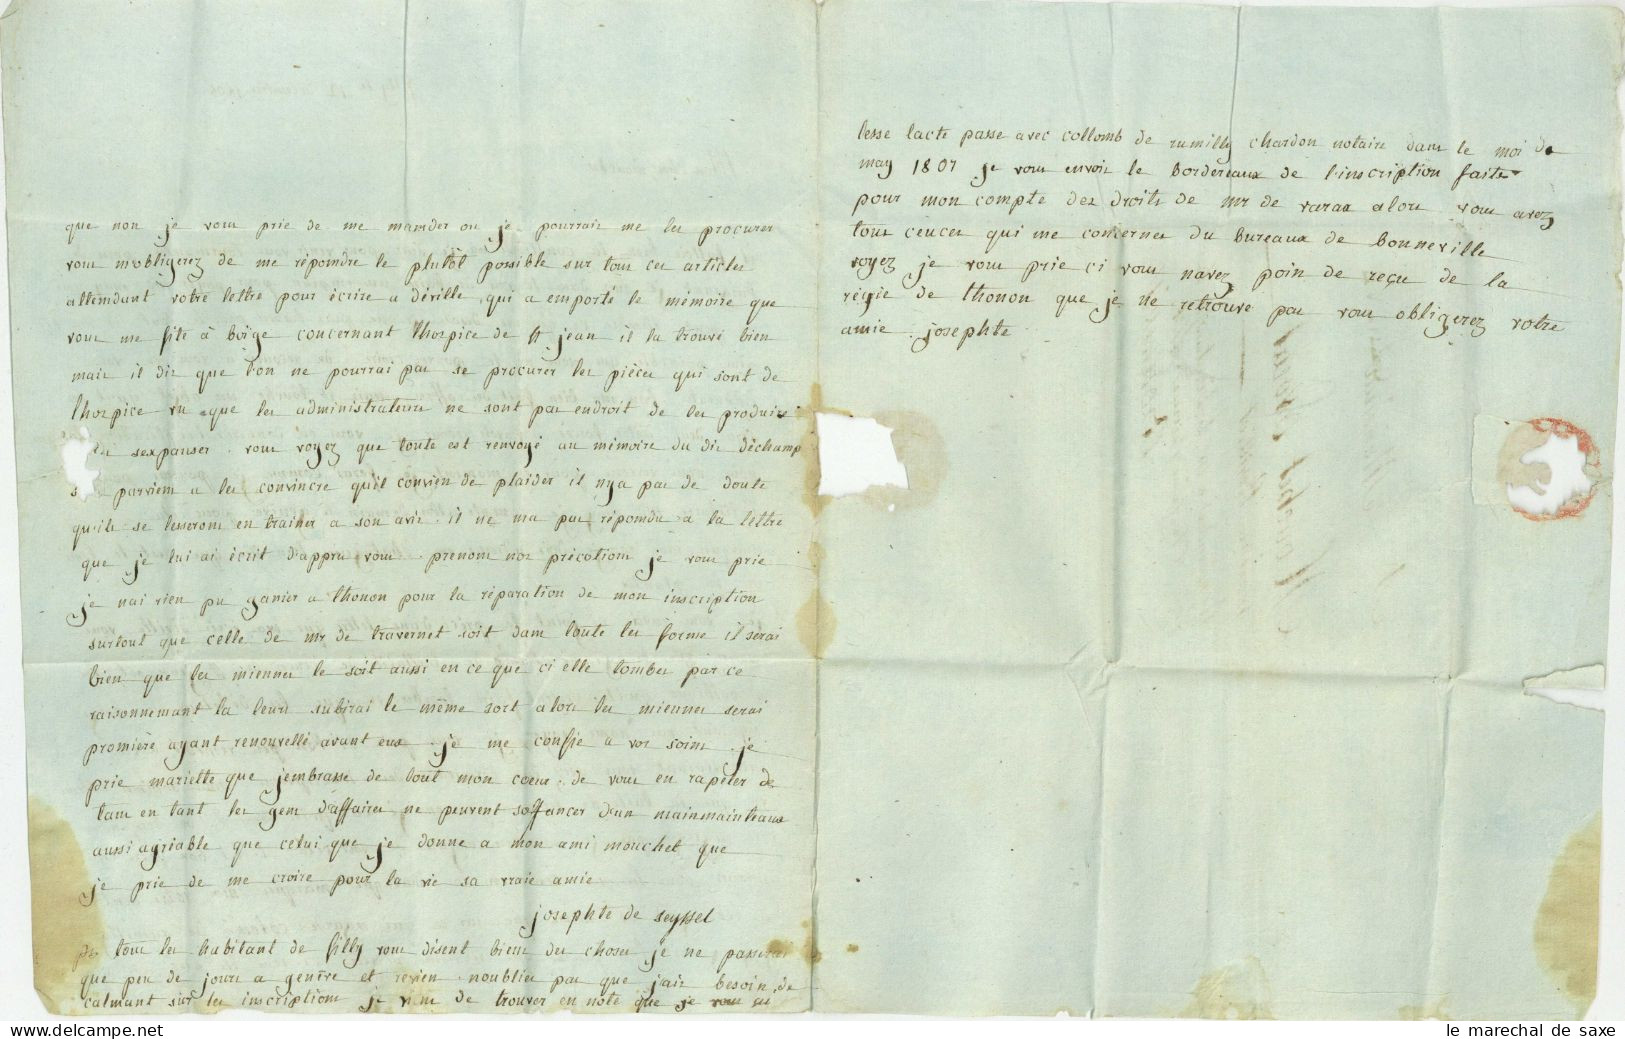 que non je vous prie de me mamder ou je pourrais me les procurer
vous mobligerez de me répomdre le plutôt possible sur tous ces articles
attemdant votre lettre pour écrire a déville qui a emporté le mémoire que
vous me fite à boîge concernant lhospice de st jean il la trouvé bien
mais il dis que l'on ne pourrai pas se procurer les pièces qui sont de
lhospice vu que les administrateurs ne sont pas endroit de les produire
sexpanser . vous voyez que toute est renvoyé au mémoire du dis dêchamp
parviens a les convincre quèl convien de plaider il nya pas de doute
quils se lesserons en trainer a son avis . il ne ma pas répomdu a la lettre
que je lui ai écrit d'appru vous . prenons nos précotions je vous prie
je nai rien pu ganier a thonon pour la réparation de mon inscription
surtout que celle de mr de travernet soit dans toute les forme il serai
bien que les miennes le soit aussi en ce que ci elle tombes par ce
raisonnemant la leurs subirai le même sort alors les miennes serai
promière ayant renouvellé avant eux . je me confie a vos soins . je
prie mariette que jembrasse de tout mon coeur . de vous en rapeler de
tams en tant les gens d'affaires ne peuvent soffancer d'un mainmainteaux
aussi agriable que celui que je donne a mon ami mouchet que
je prie de me croire pour la vie sa vraie amie
josephte de seyssel
ps tous les habitant de filly vous disent biens des choses je ne passerai
que peu de jours a genève et revien . noublies pas que jais besoin de
calmant sur les inscriptions je viens de trouver en note que je vous ai
lesse lacte passe avec collomb de rumilly chardon notaire dans le moi de
may 1807 je vous envois le Bordereaux de l'inscription faite
pour mon compte des droits de mr de varax alors vous avez
tous ceuces qui me concernes du Bureaux de Bonneville
voyez je vous prie ci vous navez poin de reçu de la
régie de thonon que je ne retrouve pas vous obligerez votre
amie josephte
le marechal de saxe